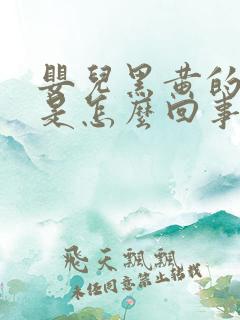 嬰兒黑黃的
是怎麼回事
飛天飄飄
未經同意禁止轉載